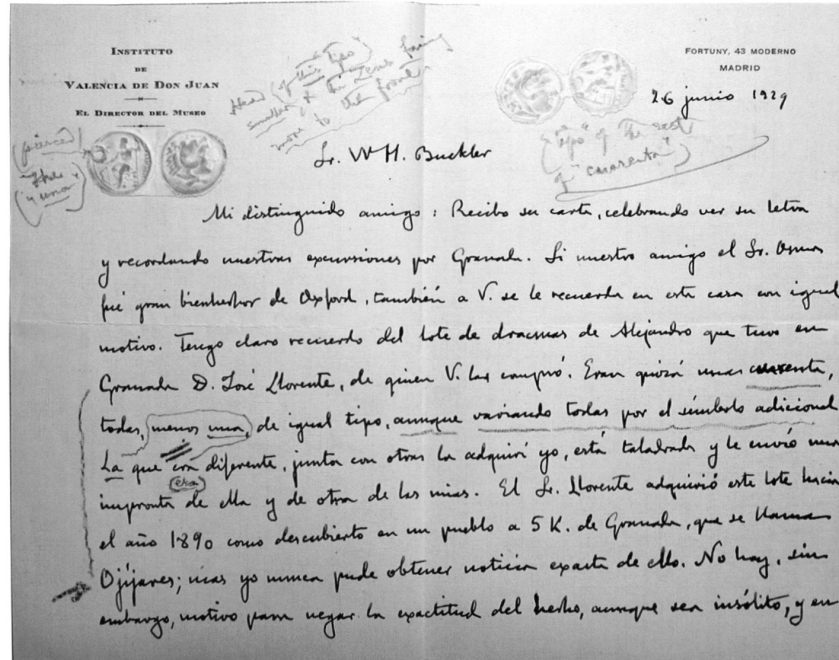 INSTITUTO
DE
VALENCIA DE DON JUAN
EL DIRECTOR DEL MUSEO
FORTUNY, 43 MODERNO
MADRID
26 junio 1929
Head (of this type)
smaller, & the Zeus facing
more to the front
(pierced)
"una"
"type" of the rest
of "cuarenta"
Sr. W H. Buckler
Mi distinguido amigo: Recibo su carta, celebrando ver su letra
y recordando nuestras excursiones por Granada. Si nuestro amigo el Sr. Osma
fué gran bienhechor de Oxford, también a V. se le recuerda en esta casa con igual
motivo. Tengo claro recuerdo del lote de dracmas de Alejandro que tuvo en
Granada D. José Llorente, de quien V. las compró. Eran quizá unas cuarenta,
todas, menos una, de igual tipo, aunque variando todas por el símbolo adicional
La que era diferente, junta con otras la adquirí yo, está taladrada y le envió una
(era)
impronta de ella y de otra de las mias. El Sr. Llorente adquirió este lote hacia
el año 1890 como descubierto en un pueblo a 5 K. de Granada, que se llama
Ojíjares; mas yo nunca pude obtener noticia exacta de ello. No hay, sin
embargo, motivo para negar la exactitud del hecho, aunque sea insólito, y en